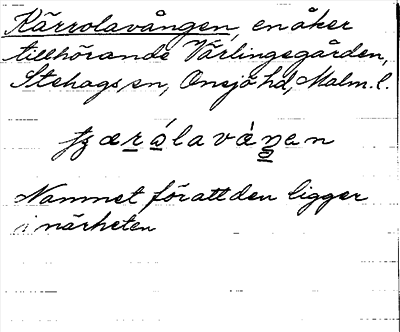 Kärrolavången, en åker
tillhörande Värlingsgården,
Stehags sn, Onsjö hd, Malm. l.
ʈʂærálavàŋen
Namnet för att den ligger
i närheten